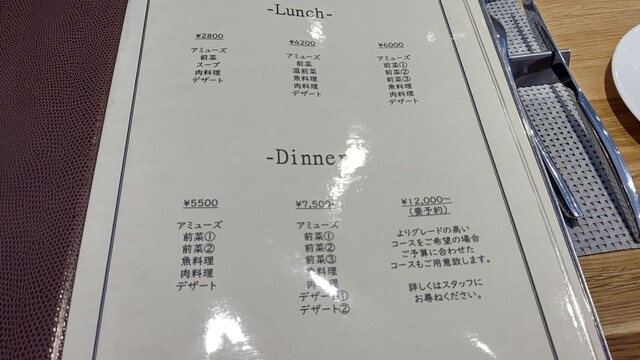 -Lunch-
¥2800
アミューズ
前菜
スープ
肉料理
デザート
¥4200
アミューズ
前菜
温前菜
魚料理
肉料理
デザート
¥6000
アミューズ
前菜①
前菜②
前菜③
魚料理
肉料理
デザート
-Dinner
¥5500
アミューズ
前菜①
前菜②
魚料理
肉料理
デザート
¥7,500~
アミューズ
前菜①
前菜②
前菜③
魚料理
肉料理
デザート①
デザート②
¥12,000~
(要予約)
よりグレードの高い
コースをご希望の場合
ご予算に合わせた
コースもご用意致します。
詳しくはスタッフに
お尋ねください。